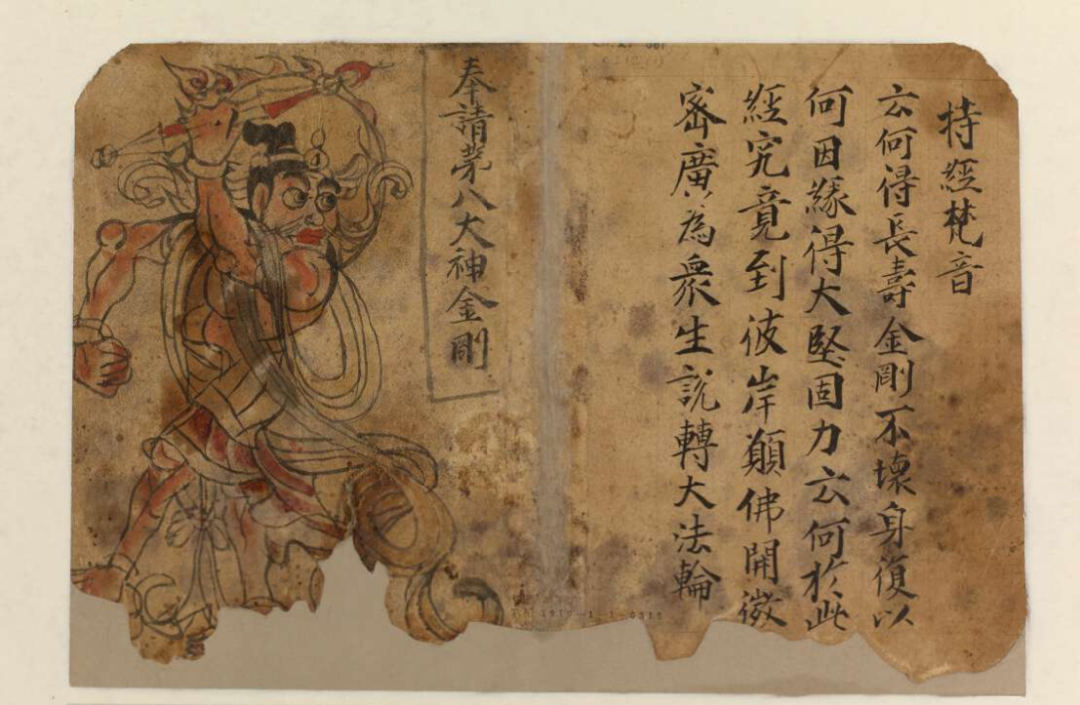 持經梵音
云何得長壽金剛不壞身復以
何因緣得大堅固力云何於此
經究竟到彼岸願佛開微
密廣為衆生說轉大法輪
奉請苐八大神金剛